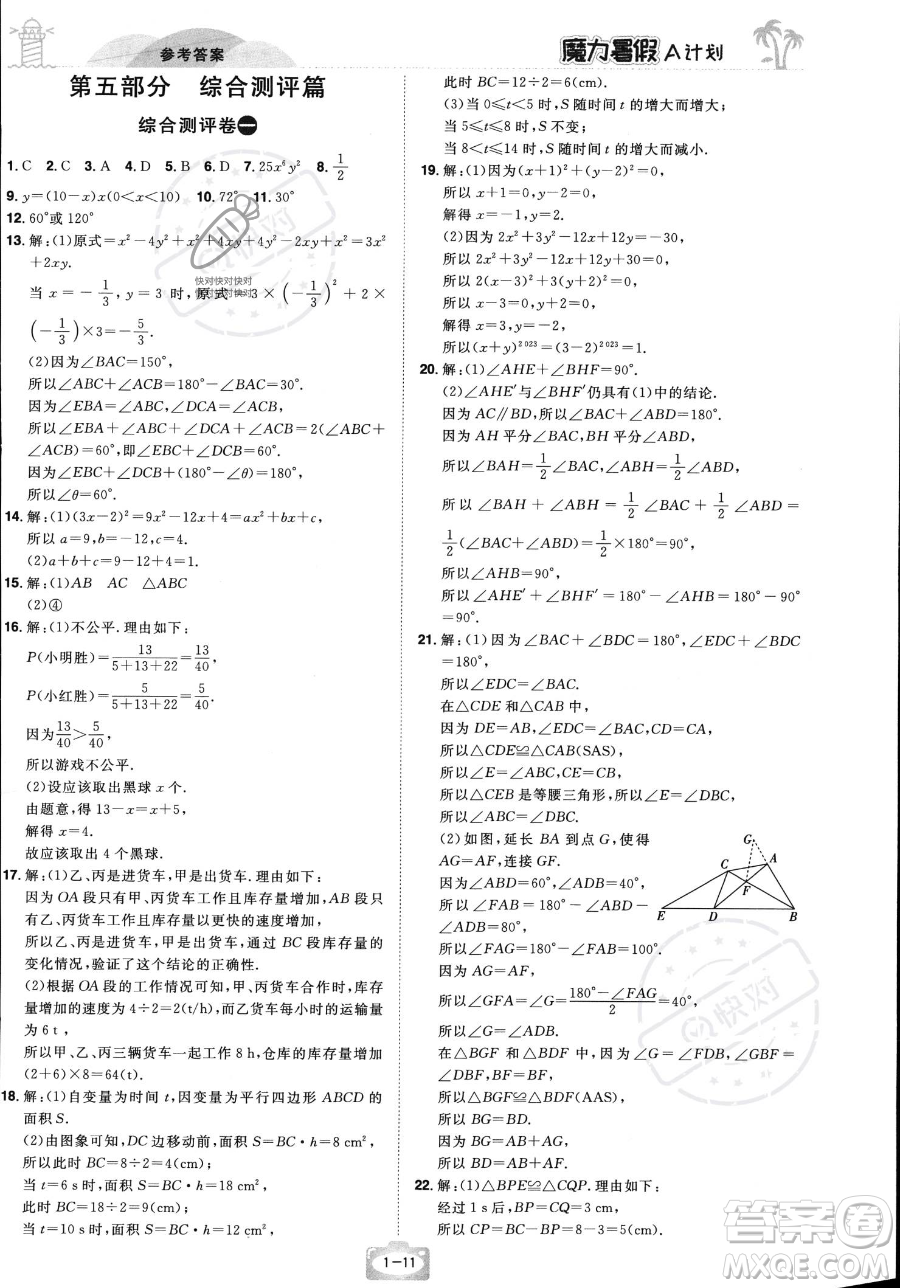 参考答案
魔力暑假 A计划
第五部分 综合测评篇
综合测评卷一
1. C 2. C 3. A 4. D 5. B 6. D 7. 25x⁶y² 8. 1/2
9. y=(10-x)x(0<x<10) 10. 72° 11. 30°
12. 60°或120°
13. 解:(1)原式=x²-4y²+x²+4xy+4y²-2xy+x²=3x²
+2xy.
当 x=-1/3,y=3 时,原式=3×(-1/3)²+2×
(-1/3)×3=-5/3.
(2)因为∠BAC=150°,
所以∠ABC+∠ACB=180°-∠BAC=30°.
因为∠EBA=∠ABC,∠DCA=∠ACB,
所以∠EBA+∠ABC+∠DCA+∠ACB=2(∠ABC+
∠ACB)=60°,即∠EBC+∠DCB=60°.
因为∠EBC+∠DCB+(180°-∠θ)=180°,
所以∠θ=60°.
14. 解:(1)(3x-2)²=9x²-12x+4=ax²+bx+c,
所以 a=9,b=-12,c=4.
(2)a+b+c=9-12+4=1.
15. 解:(1)AB AC △ABC
(2)④
16. 解:(1)不公平.理由如下:
P(小明胜)=13/(5+13+22)=13/40,
P(小红胜)=5/(5+13+22)=5/40.
因为13/40>5/40,
所以游戏不公平.
(2)设应该取出 x 个黑球.
由题意,得 13-x=x+5,
解得 x=4.
故应该取出 4 个黑球.
17. 解:(1)乙、丙是进货车,甲是出货车.理由如下:
因为 OA 段只有甲、丙货车工作且库存量增加,AB 段只
有乙、丙货车工作且库存量以更快的速度增加,
所以乙、丙是进货车,甲是出货车,通过 BC 段库存量的
变化情况,验证了这个结论的正确性.
(2)根据 OA 段的工作情况可知,甲、丙货车工作,库存
量增加的速度为 4÷2=2(t/h),而乙货车每小时的运输量
为 6 t,
所以甲、乙、丙三辆货车一起工作 8 h,仓库的库存量增加
(2+6)×8=64(t).
18. 解:(1)自变量为时间 t,因变量为平行四边形 ABCD 的
面积 S.
(2)由图象可知,DC 边移动前,面积 S=BC·h=8 cm²,
所以此时 BC=8÷2=4(cm);
当 t=6 s 时,面积 S=BC·h=18 cm²,
此时 BC=18÷2=9(cm);
当 t=10 s 时,面积 S=BC·h=12 cm²,
此时 BC=12÷2=6(cm).
(3)当 0≤t<5 时,S 随时间 t 的增大而增大;
当 5≤t≤8 时,S 不变;
当 8<t≤14 时,S 随时间 t 的增大而减小.
19. 解:(1)因为(x+1)²+(y-2)²=0,
所以 x+1=0,y-2=0,
解得 x=-1,y=2.
所以 2x²-12x+18+|-y-2|=0,
所以 2(x-3)²+|-y-2|=0,
所以 x-3=0,-y-2=0,
解得 x=3,y=-2.
所以(x+y)²⁰²³=(3-2)²⁰²³=1.
20. 解:(1)∠AHE+∠BHF=90°.
(2)∠AHE′与∠BHF′仍具有(1)中的结论.
因为 AC∥BD,所以∠BAC+∠ABD=180°.
因为 AH 平分∠BAC,BH 平分∠ABD,
所以∠BAH=1/2∠BAC,∠ABH=1/2∠ABD,
所以∠BAH+∠ABH=1/2∠BAC+1/2∠ABD=
1/2(∠BAC+∠ABD)=1/2×180°=90°,
所以∠AHB=90°,
所以∠AHE′+∠BHF′=180°-∠AHB=180°-90°
=90°.
21. 解:(1)因为∠BAC+∠BDC=180°,∠EDC+∠BDC
=180°,
所以∠EDC=∠BAC.
在△CDE 和△CAB 中,
因为 DE=AB,∠EDC=∠BAC,CD=CA,
所以△CDE≌△CAB(SAS),
所以∠E=∠ABC,CE=CB,
所以△CEB 是等腰三角形,所以∠E=∠DBC,
所以∠ABC=∠DBC.
(2)如图,延长 BA 到点 G,使得
AG=AF,连接 GF.
因为∠FAB=∠BDC=80°,
所以∠FAG=180°-∠FAB=
180°-80°=100°.
因为 AG=AF,
所以∠GFA=∠G=(180°-∠FAG)/2=40°,
所以∠G=∠ADB.
在△BGF 和△BDF 中,因为∠G=∠ADB,∠GBF=
∠DBF,BF=BF,
所以△BGF≌△BDF(AAS),
所以 BG=BD.
因为 BG=AB+AG=AB+AF,
所以 BD=AB+AF.
22. 解:(1)△BPE≌△CQP.理由如下:
经过 1 s 后,BP=CQ=3 cm,
所以 CP=BC-BP=8-3=5(cm).
G
C
A
F
E
D
B
快对快对快对
快对快对快对
快对
答案圈
1-11